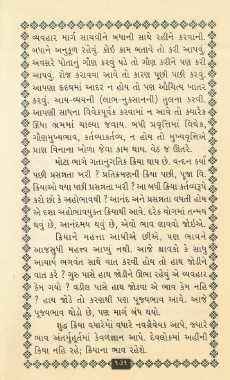 વ્યવહાર માર્ગ સાચવીને બધાની સાથે રહીને કરવાની.
બધાને અનુકૂળ રહેવું. કોઈ કામ બતાવે તો કરી આપવું,
અવસરે પોતાનું ગૌણ કરવું પડે તો ગૌણ કરીને પણ કરી
આપવું. રોજ કરાવવા આવે તો કારણ પૂછી પછી કરવું.
આપણા હૃદયમાં આદર ન હોય તો પણ ઔચિત્ય ખાતર
કરવું. આય-વ્યયની (લાભ-નુકસાનની) તુલના કરવી.
આપણી સાધના વિવેકપૂર્વક કરવામાં ન આવે તો ક્યારે
ઊંધા ભ્રમમાં ચાલ્યા જવાય. બધી પ્રવૃત્તિમાં વિવેક,
ગૌણમુખ્યભાવ, કર્તવ્યાકર્તવ્ય, ન હોય તો મુખ્યવૃત્તિએ
પ્રાણ વિનાના ખોળા જેવા કામ થાય. વેઠ જ ઊતરે.
મોટા ભાગે ગતાનુગતિક ક્રિયા થાય છે. વન્દન કર્યા
પછી પ્રસન્નતા ખરી ? પ્રતિક્રમણની ક્રિયા પછી, પૂજા વિ.
ક્રિયાઓ થયા પછી પ્રસન્નતા ખરી ? આ બધી ક્રિયા કર્તવ્યરૂપે
કરો છો કે અહોભાવથી ? આનંદ અને પ્રસન્નતા વધતી હોય
એ દશા અહોભાવયુક્ત ક્રિયાથી આવે. દરેક યોગમાં તન્મય
થવું છે, આનંદમય થવું છે, એવો ભાવ લાવવો જોઈએ.
ક્રિયાને મહત્તા આપીએ છીએ, પણ ભાવને
આજસુધી મહત્ત્વ આપ્યું નથી. આજે શ્રાવકો કે સાધુ
આચાર્ય ભગવંત સાથે વાત કરવી હોય તો હાથ જોડીને
વાત કરે ? ગુરુ પાસે હાથ જોડીને ઊભા રહેવું એ વ્યવહાર
કેમ ગયો ? વડીલ પાસે હાથ જોડવા એ ભાવ કેમ નહિ
? હાથ જોડે તો કરણથી પણ પૂજ્યભાવ આવે. આજે
પૂજ્યભાવ થોડો છે, પણ માર્ગ બંધ થયો.
શુદ્ધ ક્રિયા વધારેમાં વધારે નવગ્રૈવેયક આપે, જ્યારે
ભાવ અંતર્મુહૂર્તમાં કેવળજ્ઞાન આપે. દેવલોકમાં અહીંની
ક્રિયા નહિ રહે; ક્રિયાના ભાવ રહેશે.
૧૩૧